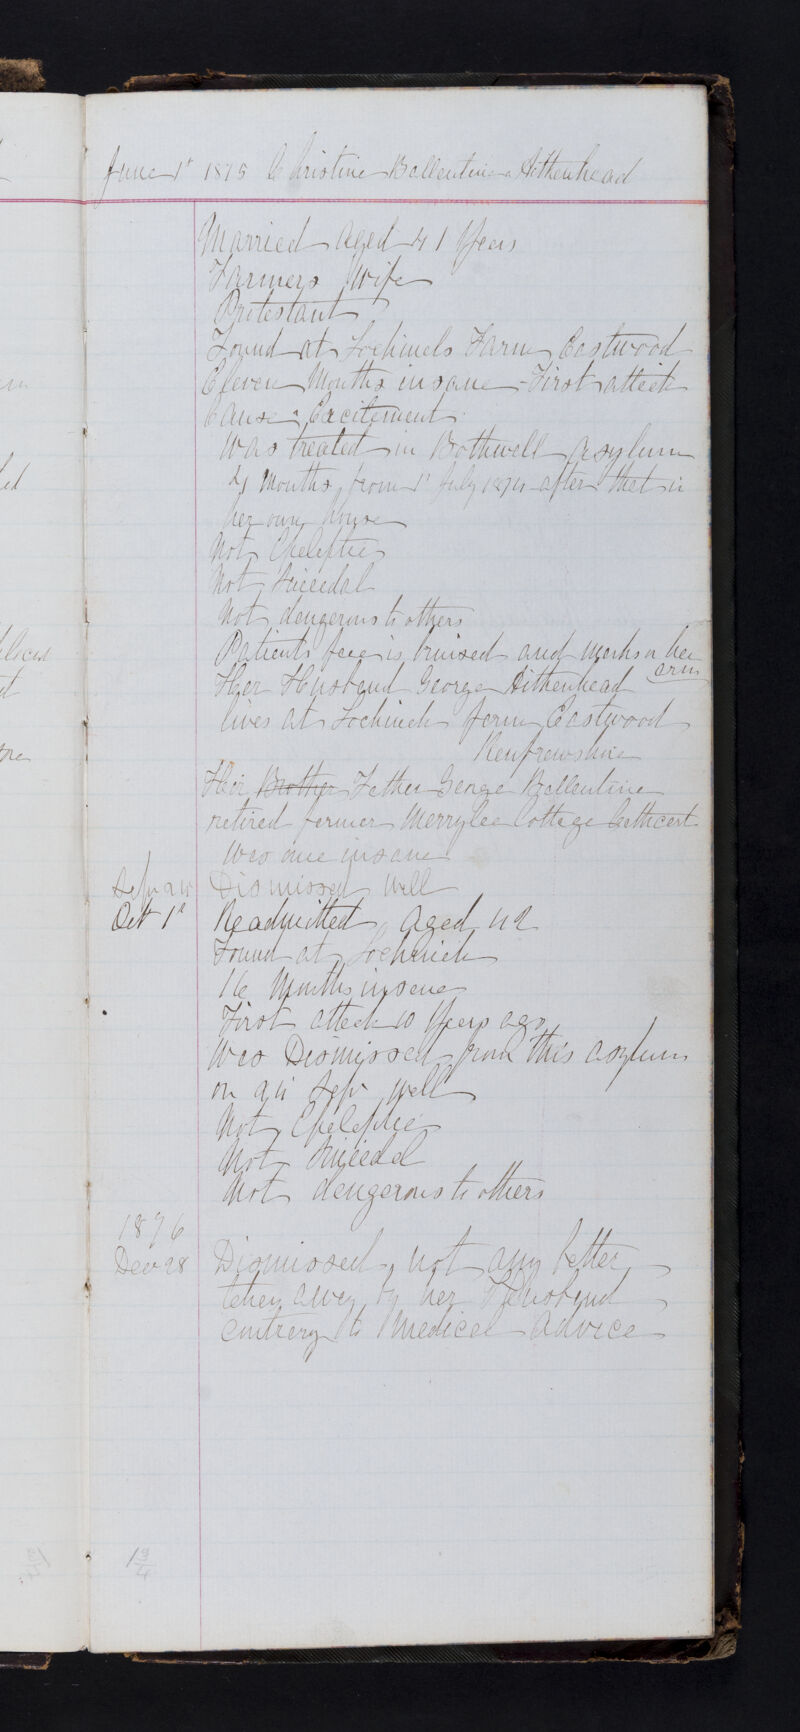 June 1st 1875 Christine Ballentine Aithenhead
Married aged 41 Years
Farmers Wife
Protestant
Found at Lochinch Farm Eastwood
Eleven Months insane - First attack
Cause - Excitement
Was treated in Bothwell asylum
4 Months from 1st July 1874 after that in
her own house
Not Epeleptic
Not Suicidal
Not dangerous to others
Patients face is bruised and marks on her
arm
Her Husband George Aithenhead
lives at Lochinch farm Eastwood
Renfrewshire
Her Brother Father George Ballentine
retired farmer Merrylee Cottage Cathcart
Was once insane
Dismissed Well
Oct 1st Readmitted aged 42
Found at Lochinch
16 Months insane
First attack 10 Years ago
Was Dismissed from this asylum
on Sepr Well
Not Epeleptic
Not Suicidal
Not dangerous to others
1876
Decr 28 Dismissed, not any better
taken away by her Husband
contrary to Medical advice